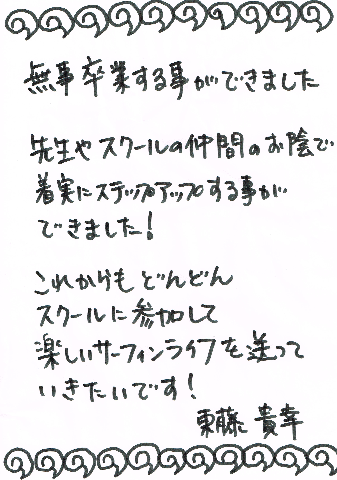 無事卒業する事ができました
先生やスクールの仲間のお陰で
着実にステップアップする事が
できました!
これからもどんどん
スクールに参加して
楽しいサーフィンライフを送って
いきたいです!
東藤 貴幸